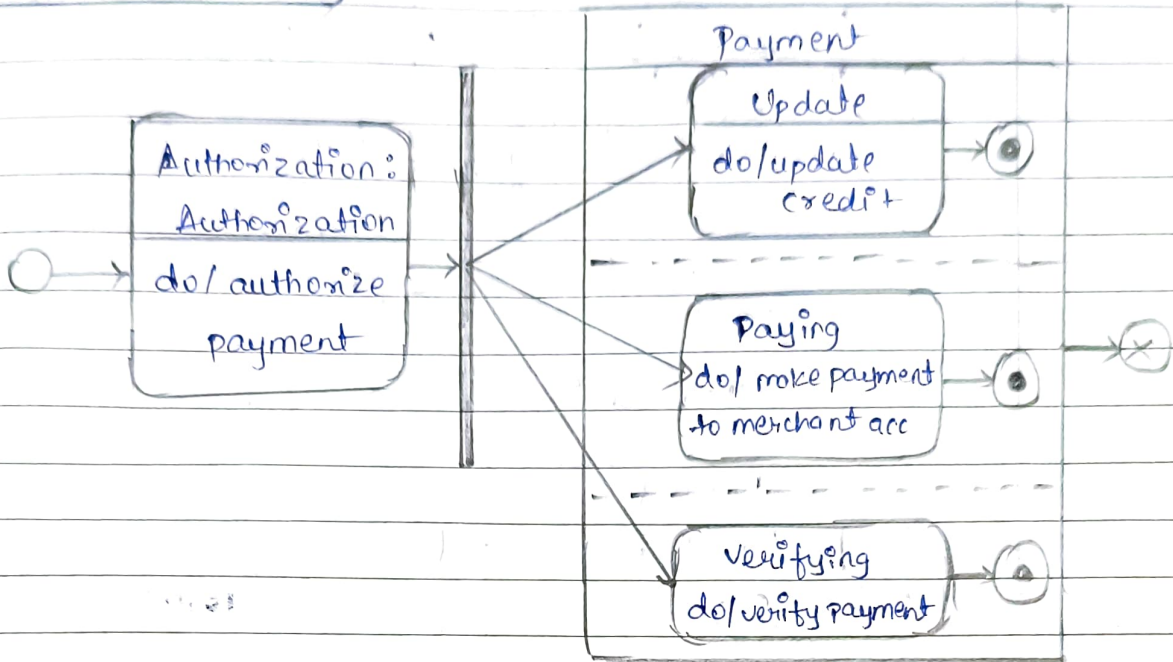 Authorization:
Authorization
do/ authorize
payment
Payment
Update
do/update
credit
Paying
do/ make payment
to merchant acc
Verifying
do/verify payment